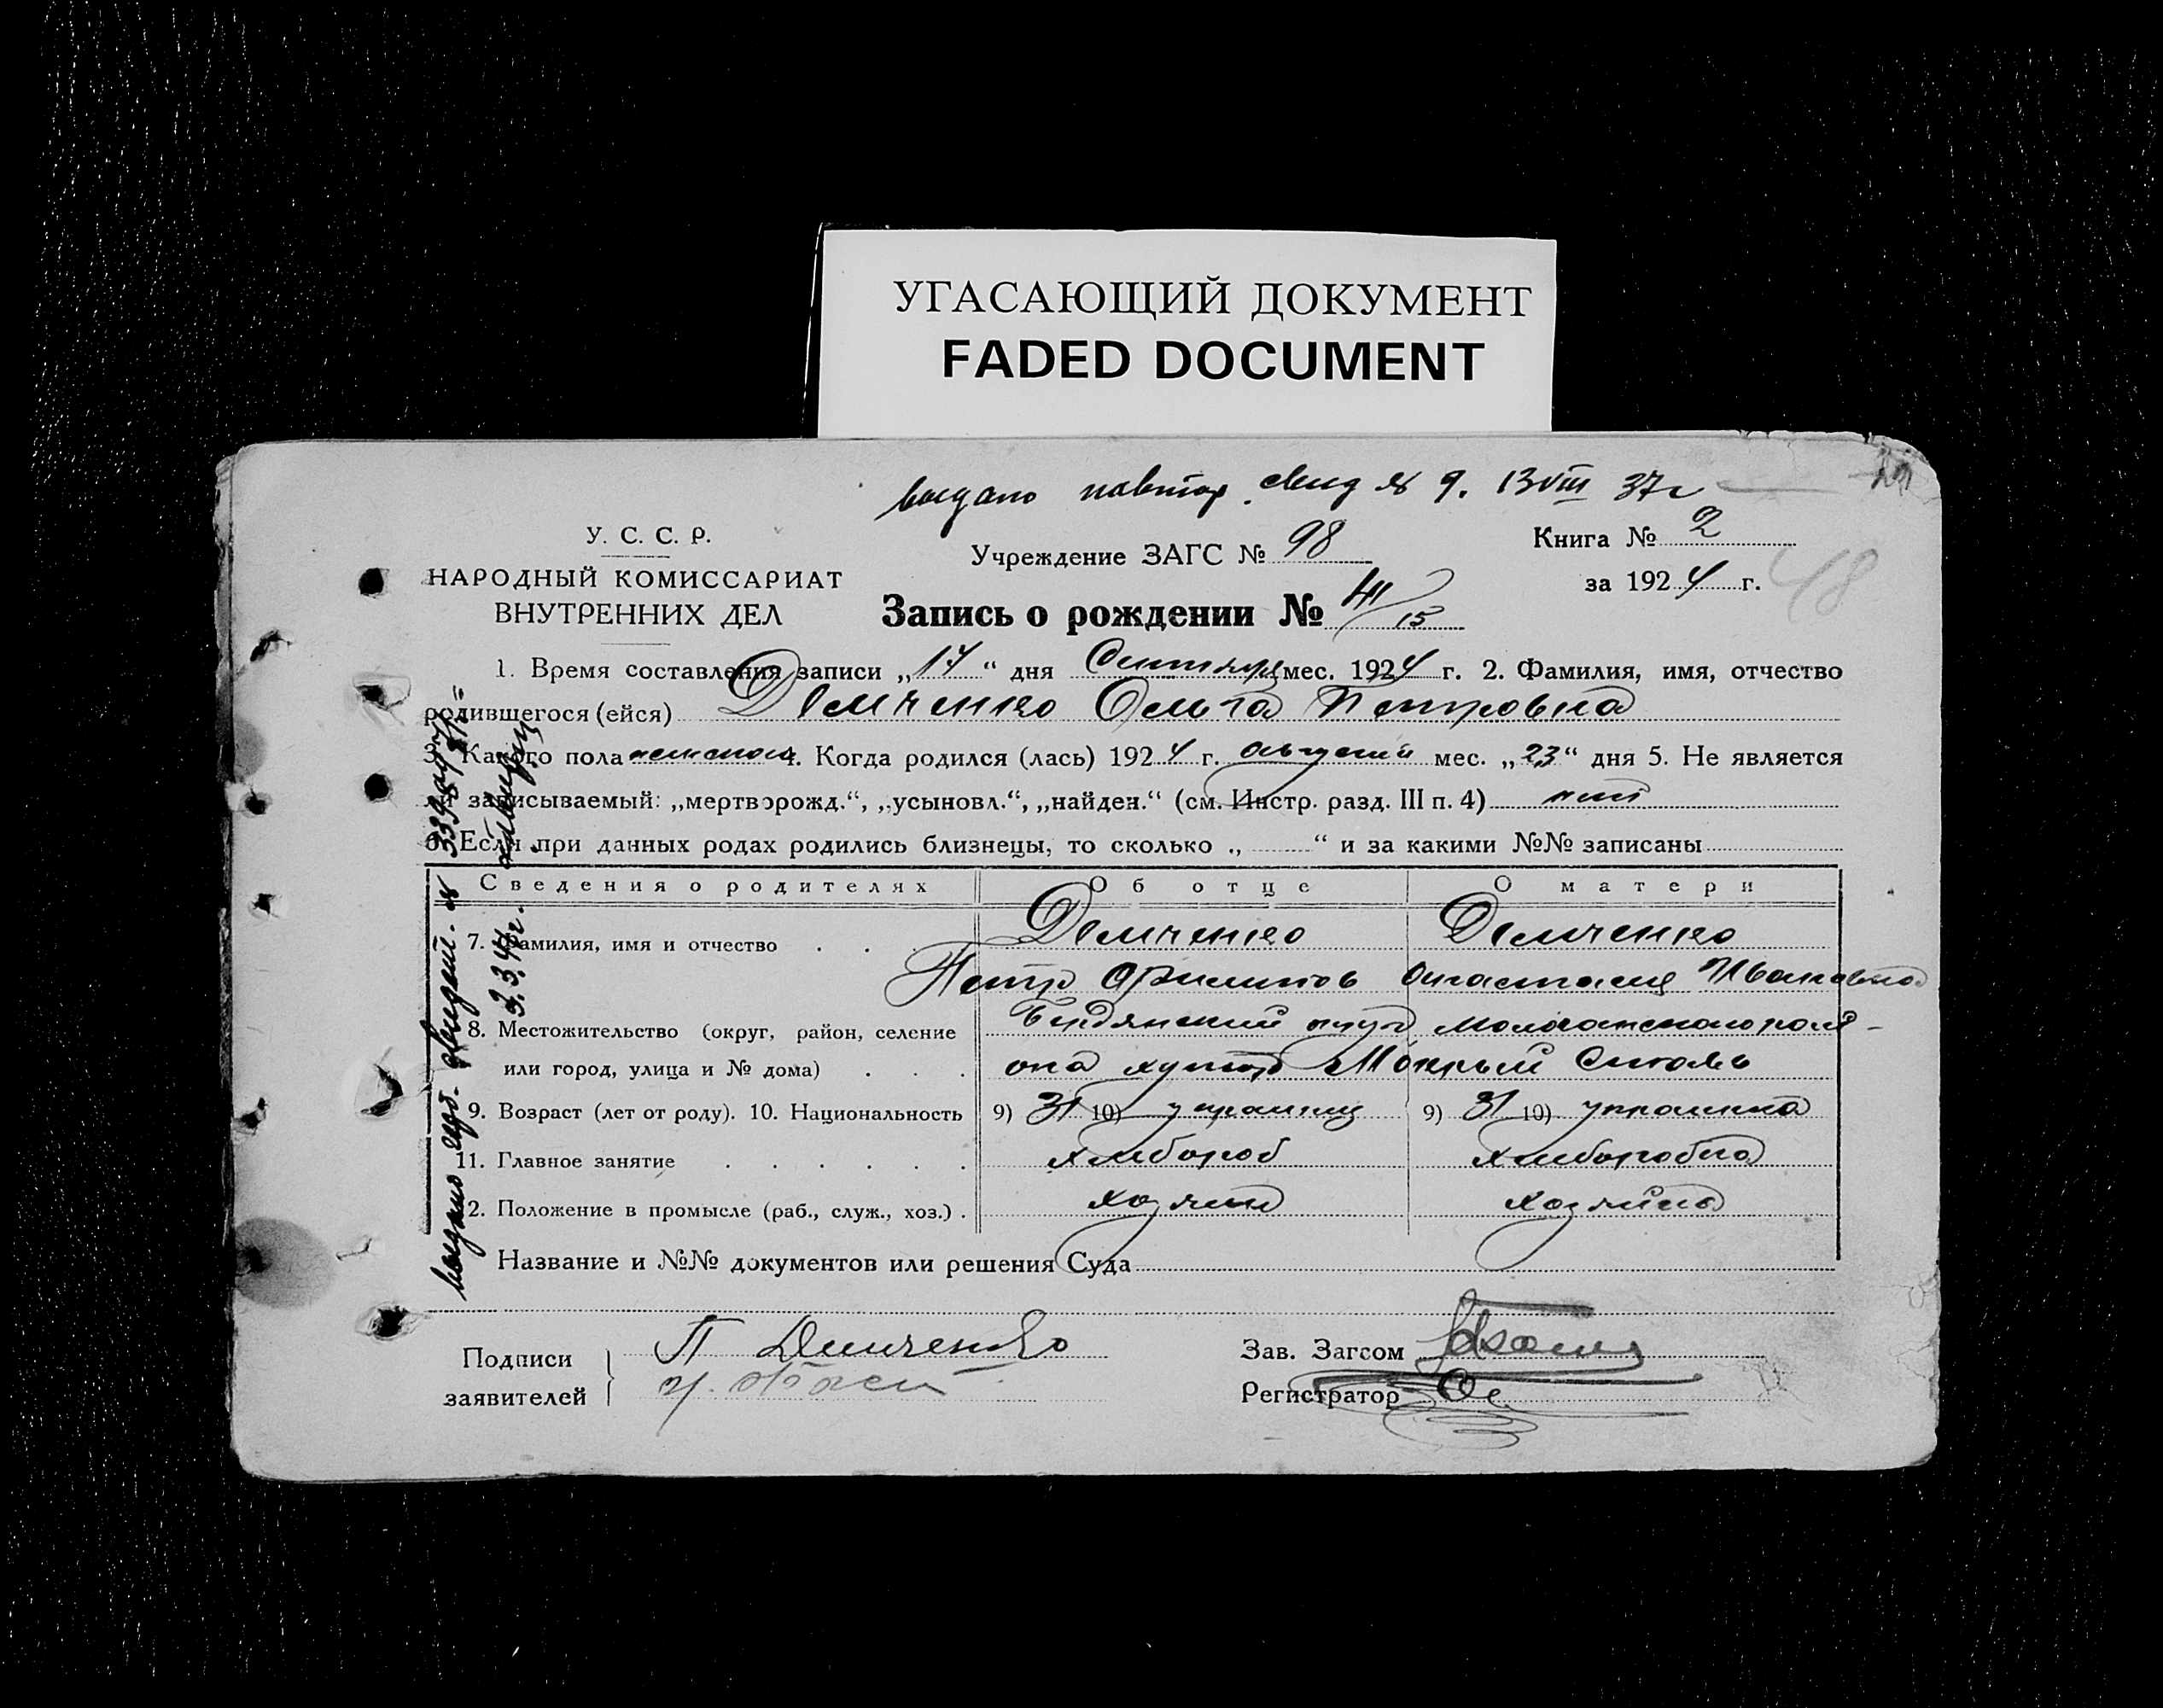 УГАСАЮЩИЙ ДОКУМЕНТ
FADED DOCUMENT
выдано повтор. свид № 9. 13 VIII 37 г
У. С. С. Р.
НАРОДНЫЙ КОМИССАРИАТ
ВНУТРЕННИХ ДЕЛ
Учреждение ЗАГС № 98
Книга № 2
за 1924 г.
48
Запись о рождении № 41/15
1. Время составления записи „14“ дня Сентября мес. 1924 г. 2. Фамилия, имя, отчество
родившегося (ейся) Демченко Ольга Петровна
3. Какого пола женского 4. Когда родился (лась) 1924 г. август мес. „23“ дня 5. Не является
записываемый: „мертворожд.“, „усыновл.“, „найден.“ (см. Инстр. разд. III п. 4) нет
6. Если при данных родах родились близнецы, то сколько „ “ и за какими №№ записаны
Сведения о родителях Об отце О матери
7. Фамилия, имя и отчество Демченко Демченко
Петр Филипов Анастасия Ивановна
8. Местожительство (округ, район, селение Бердянский округ Молочанского рай-
или город, улица и № дома) она хутор Мокрый
9. Возраст (лет от роду). 10. Национальность 9) 31 10) украинец 9) 31 10) украинка
11. Главное занятие хлебороб хлеборобка
12. Положение в промысле (раб., служ., хоз.) хозяин
Название и №№ документов или решения Суда
Подписи заявителей П Демченко
Зав. Загсом
Регистратор
выдано дуб. свидет. №